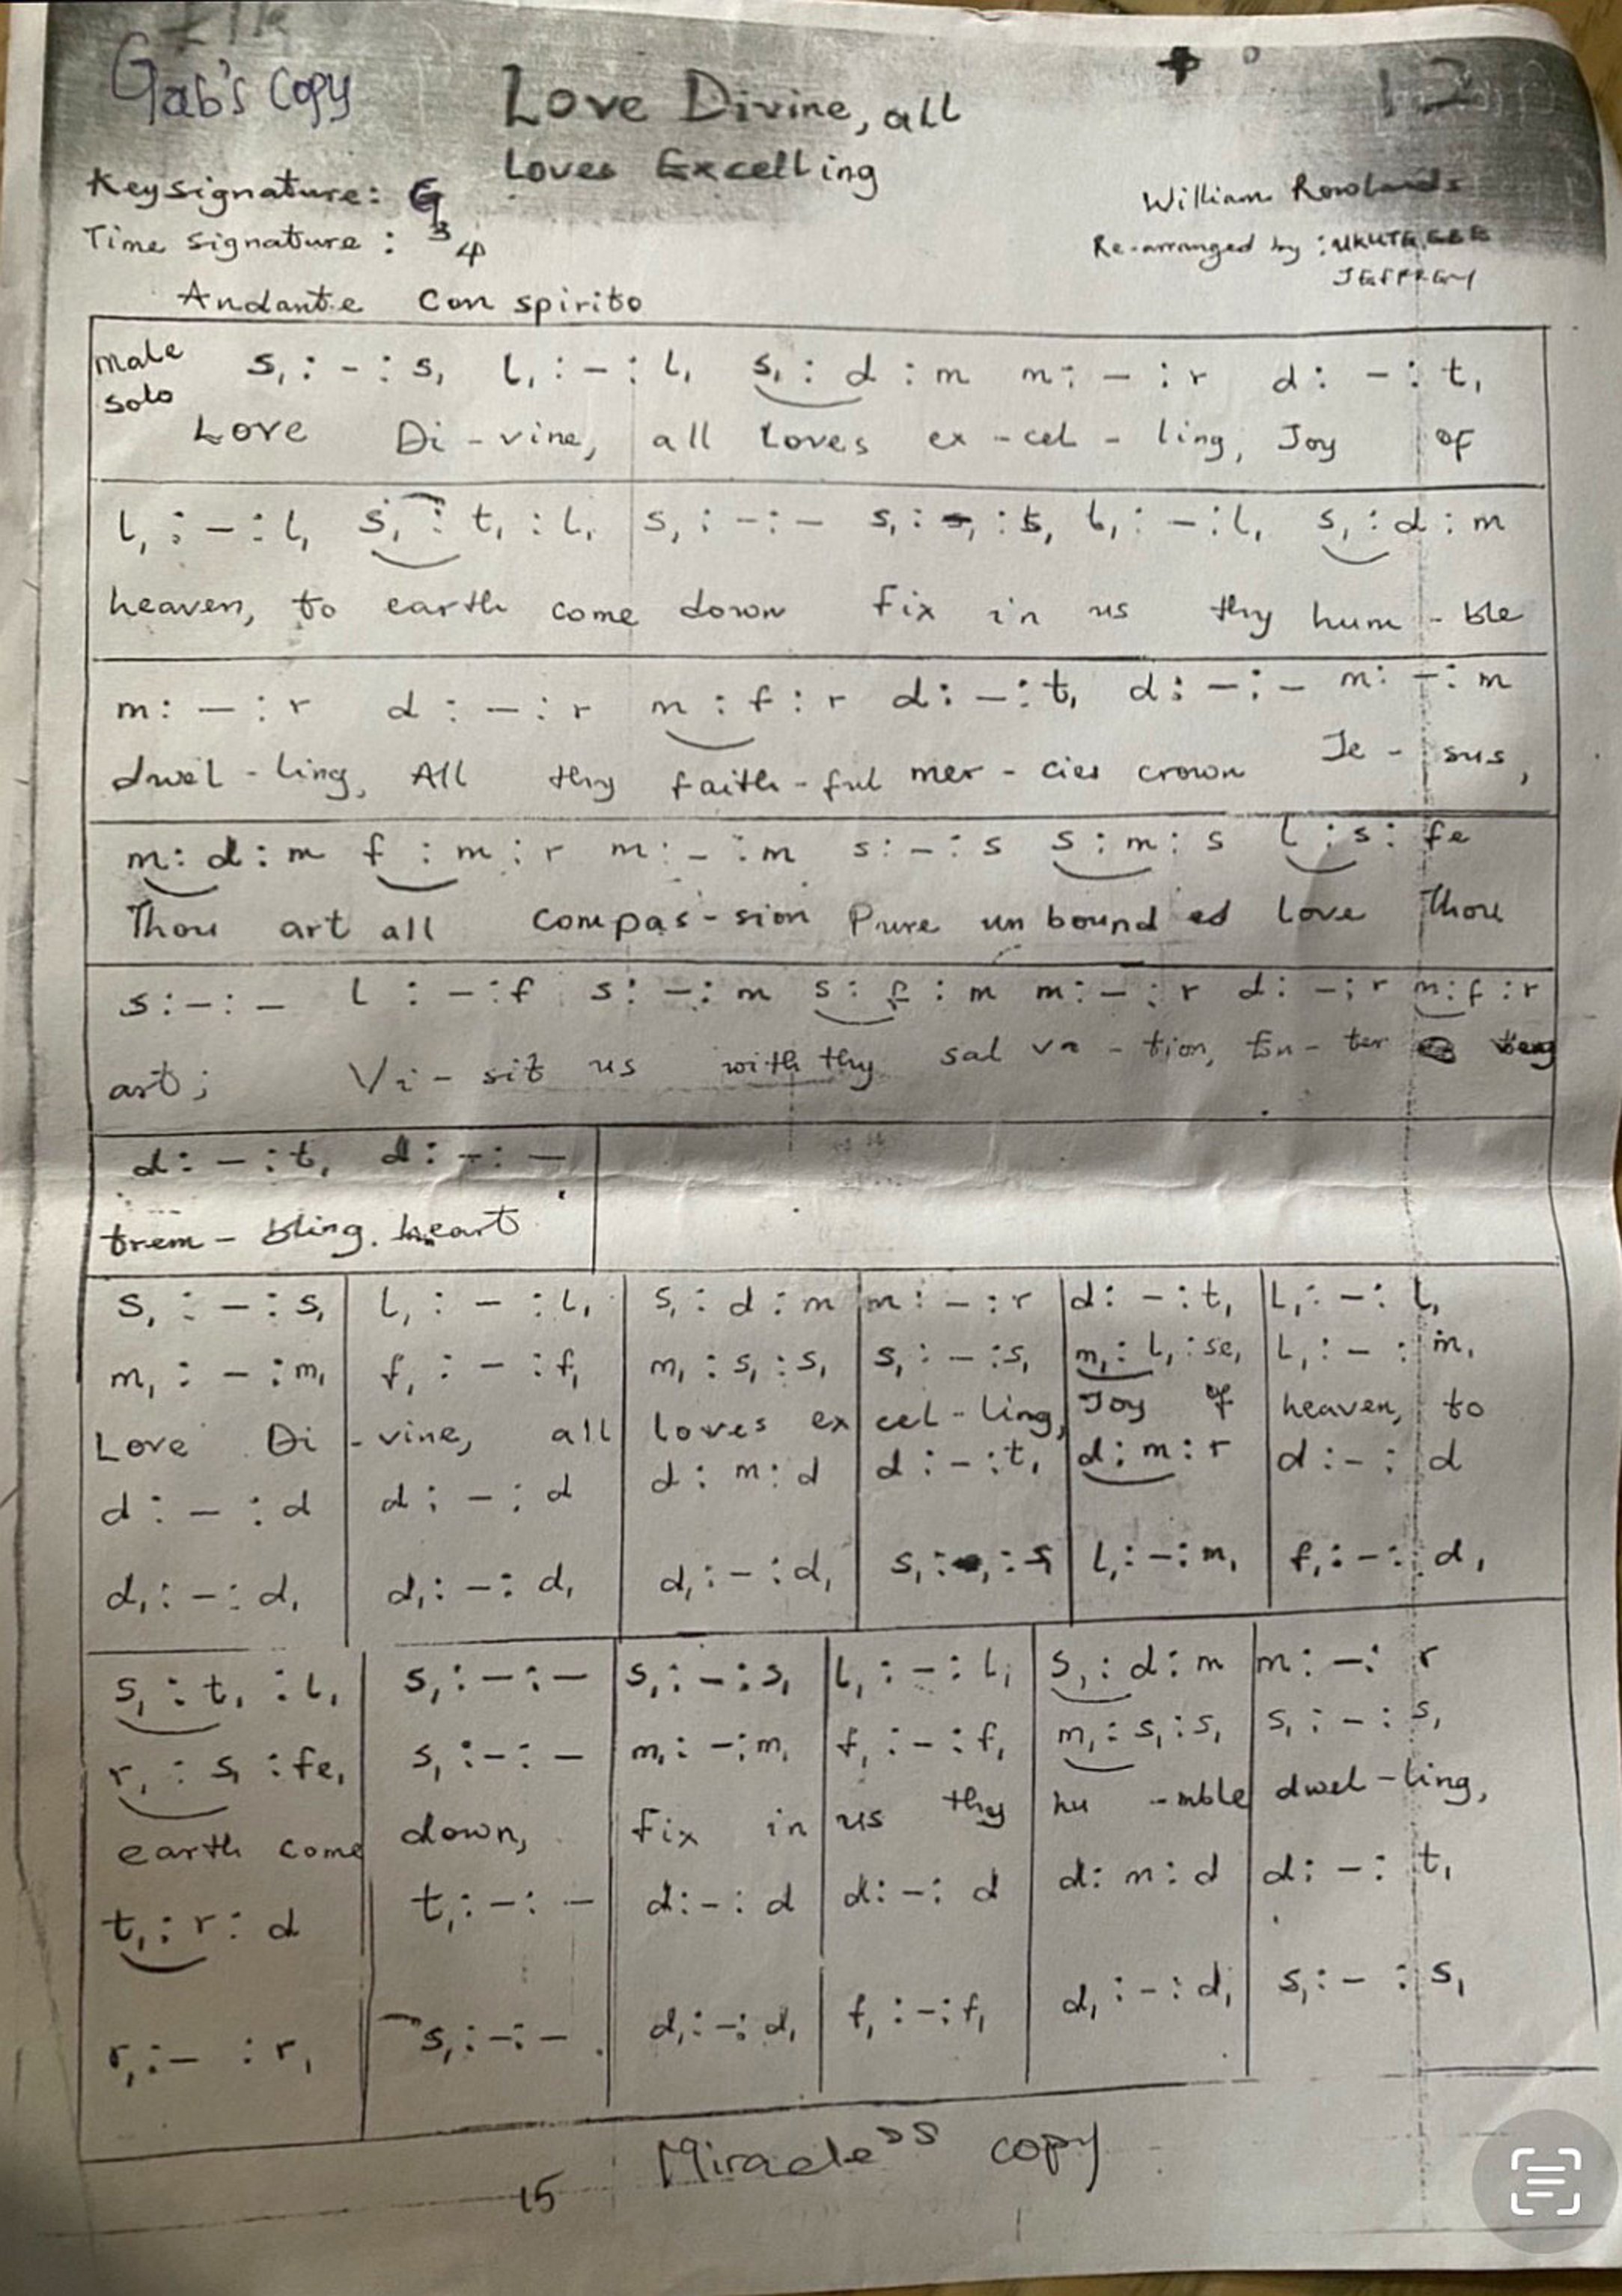 Gab's Copy
Love Divine, all
Loves Excelling
12
Key signature: G
Time signature: 3 4
William Rowlands
Re-arranged by:
JEFFREY
Andante Con spirito
Male solo
s, : - : s, l, : - : l, s, : d : m m : - : r d : - : t,
Love Di - vine, all loves ex - cel - ling, Joy of
l, : - : l, s, : t, : l, s, : - : - s, : - : s, l, : - : l, s, : d : m
heaven, to earth come down fix in us thy hum - ble
m : - : r d : - : r m : f : r d : - : t, d : - : - m : - : m
dwel - ling, All thy faith - ful mer - cies crown Je - sus,
m : d : m f : m : r m : - : m s : - : s s : m : s l : s : fe
Thou art all compas - sion Pure un bound ed love thou
s : - : - l : - : f s : - : m s : f : m m : - : r d : - : r m : f : r
art; Vi - sit us with thy sal va - tion, En - ter
d : - : t, d : - : -
trem - bling. heart
s, : - : s, l, : - : l, s, : d : m m : - : r d : - : t, l, : - : l,
m, : - : m, f, : - : f, m, : s, : s, s, : - : s, m, : l, : se, l, : - : m,
Love Di - vine, all loves ex cel - ling, Joy of heaven, to
d : - : d d : - : d d : m : d d : - : t, d : m : r d : - : d
d, : - : d, d, : - : d, d, : - : d, s, : - : s, l, : - : m, f, : - : d,
s, : t, : l, s, : - : - s, : - : s, l, : - : l, s, : d : m m : - : r
r, : s, : fe, s, : - : - m, : - : m, f, : - : f, m, : s, : s, s, : - : s,
earth come down, fix in us thy hu - mble dwel - ling,
t, : r : d t, : - : - d : - : d d : - : d d : m : d d : - : t,
r, : - : r, s, : - : - d, : - : d, f, : - : f, d, : - : d, s, : - : s,
15
Miracle's copy